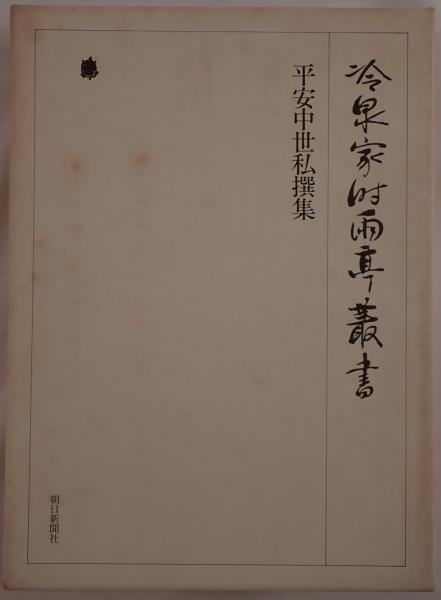 冷泉家時雨亭叢書
平安中世私撰集
朝日新聞社